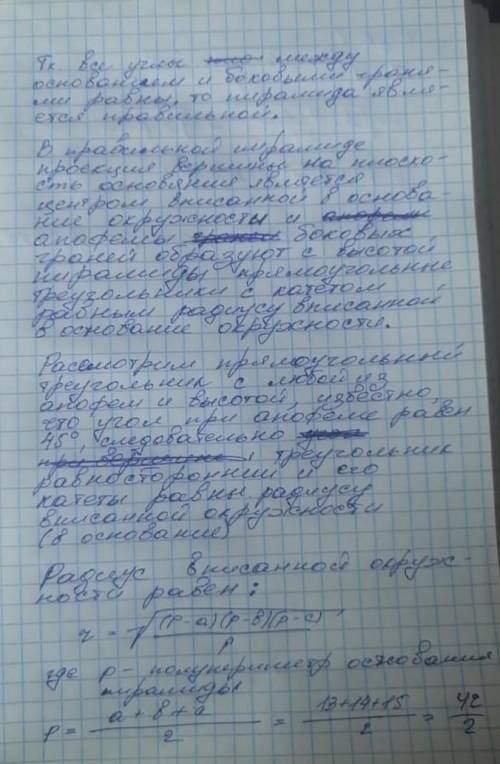 Тк все углы между
основанием и боковыми граня-
ми равны, то пирамида явля-
ется правильной.
В правильной пирамиде
проекция вершины на плоско-
сть основания является
центром вписанной в основа-
ние окружности и
апофемы боковых
граней образуют с высотой
пирамиды прямоугольные
треугольники с катетом
равным радиусу вписанной
в основание окружности.
Рассмотрим прямоугольный
треугольник с любой из
апофем и высотой, известно,
что угол при апофеме равен
45°, следовательно
, треугольник
равносторонний и его
катеты равны радиусу
вписанной окружности
(в основание)
Радиус вписанной окруж-
ности равен:
r = √((p-a)(p-в)(p-c)/p)
где p - полупериметр основания
пирамиды
p = (a+в+a)/2 = (13+14+15)/2 = 42/2